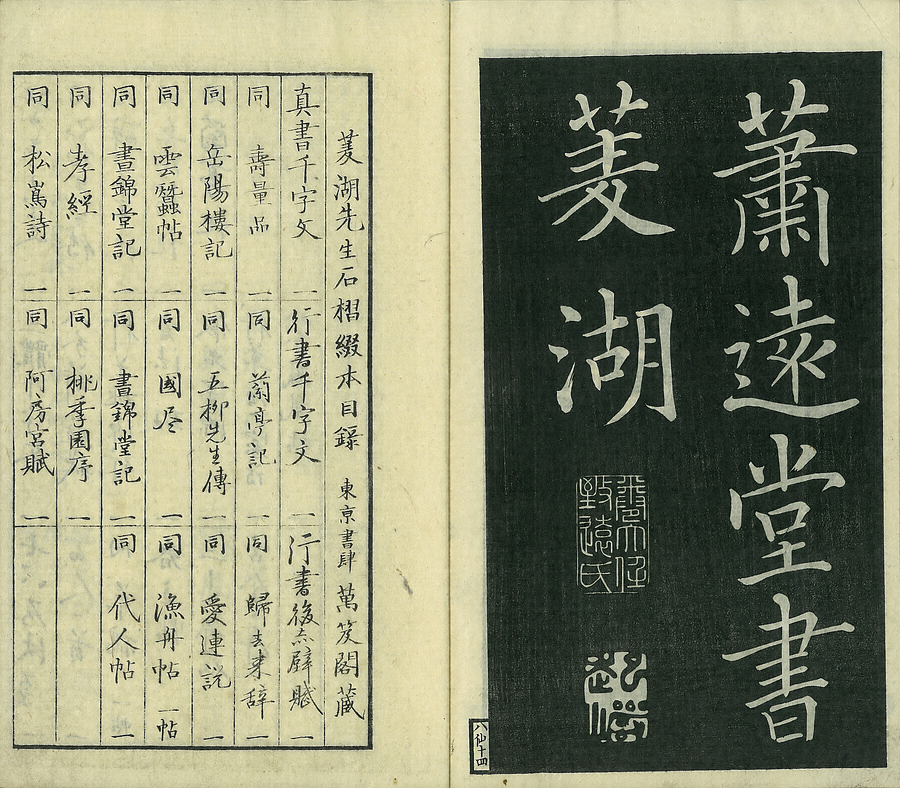 蕭遠堂書
菱湖
八仙十四
菱湖先生石摺綴本目録 東亰書肆 萬笈閣藏
真書千字文 一 行書千字文 一 行書後赤壁賦 一
同 壽量品 一 同 蘭亭記 一 同 歸去来辞 一
同 岳陽樓記 一 同 五柳先生傳 一 同 愛連説 一
同 雲蠶帖 一 同 國尽 一 同 漁舟帖 一帖
同 晝錦堂記 一 同 晝錦堂記 一 同 代人帖 一
同 孝經 一 同 桃李園序 一
同 松嶌詩 一 同 阿房宮賦 一